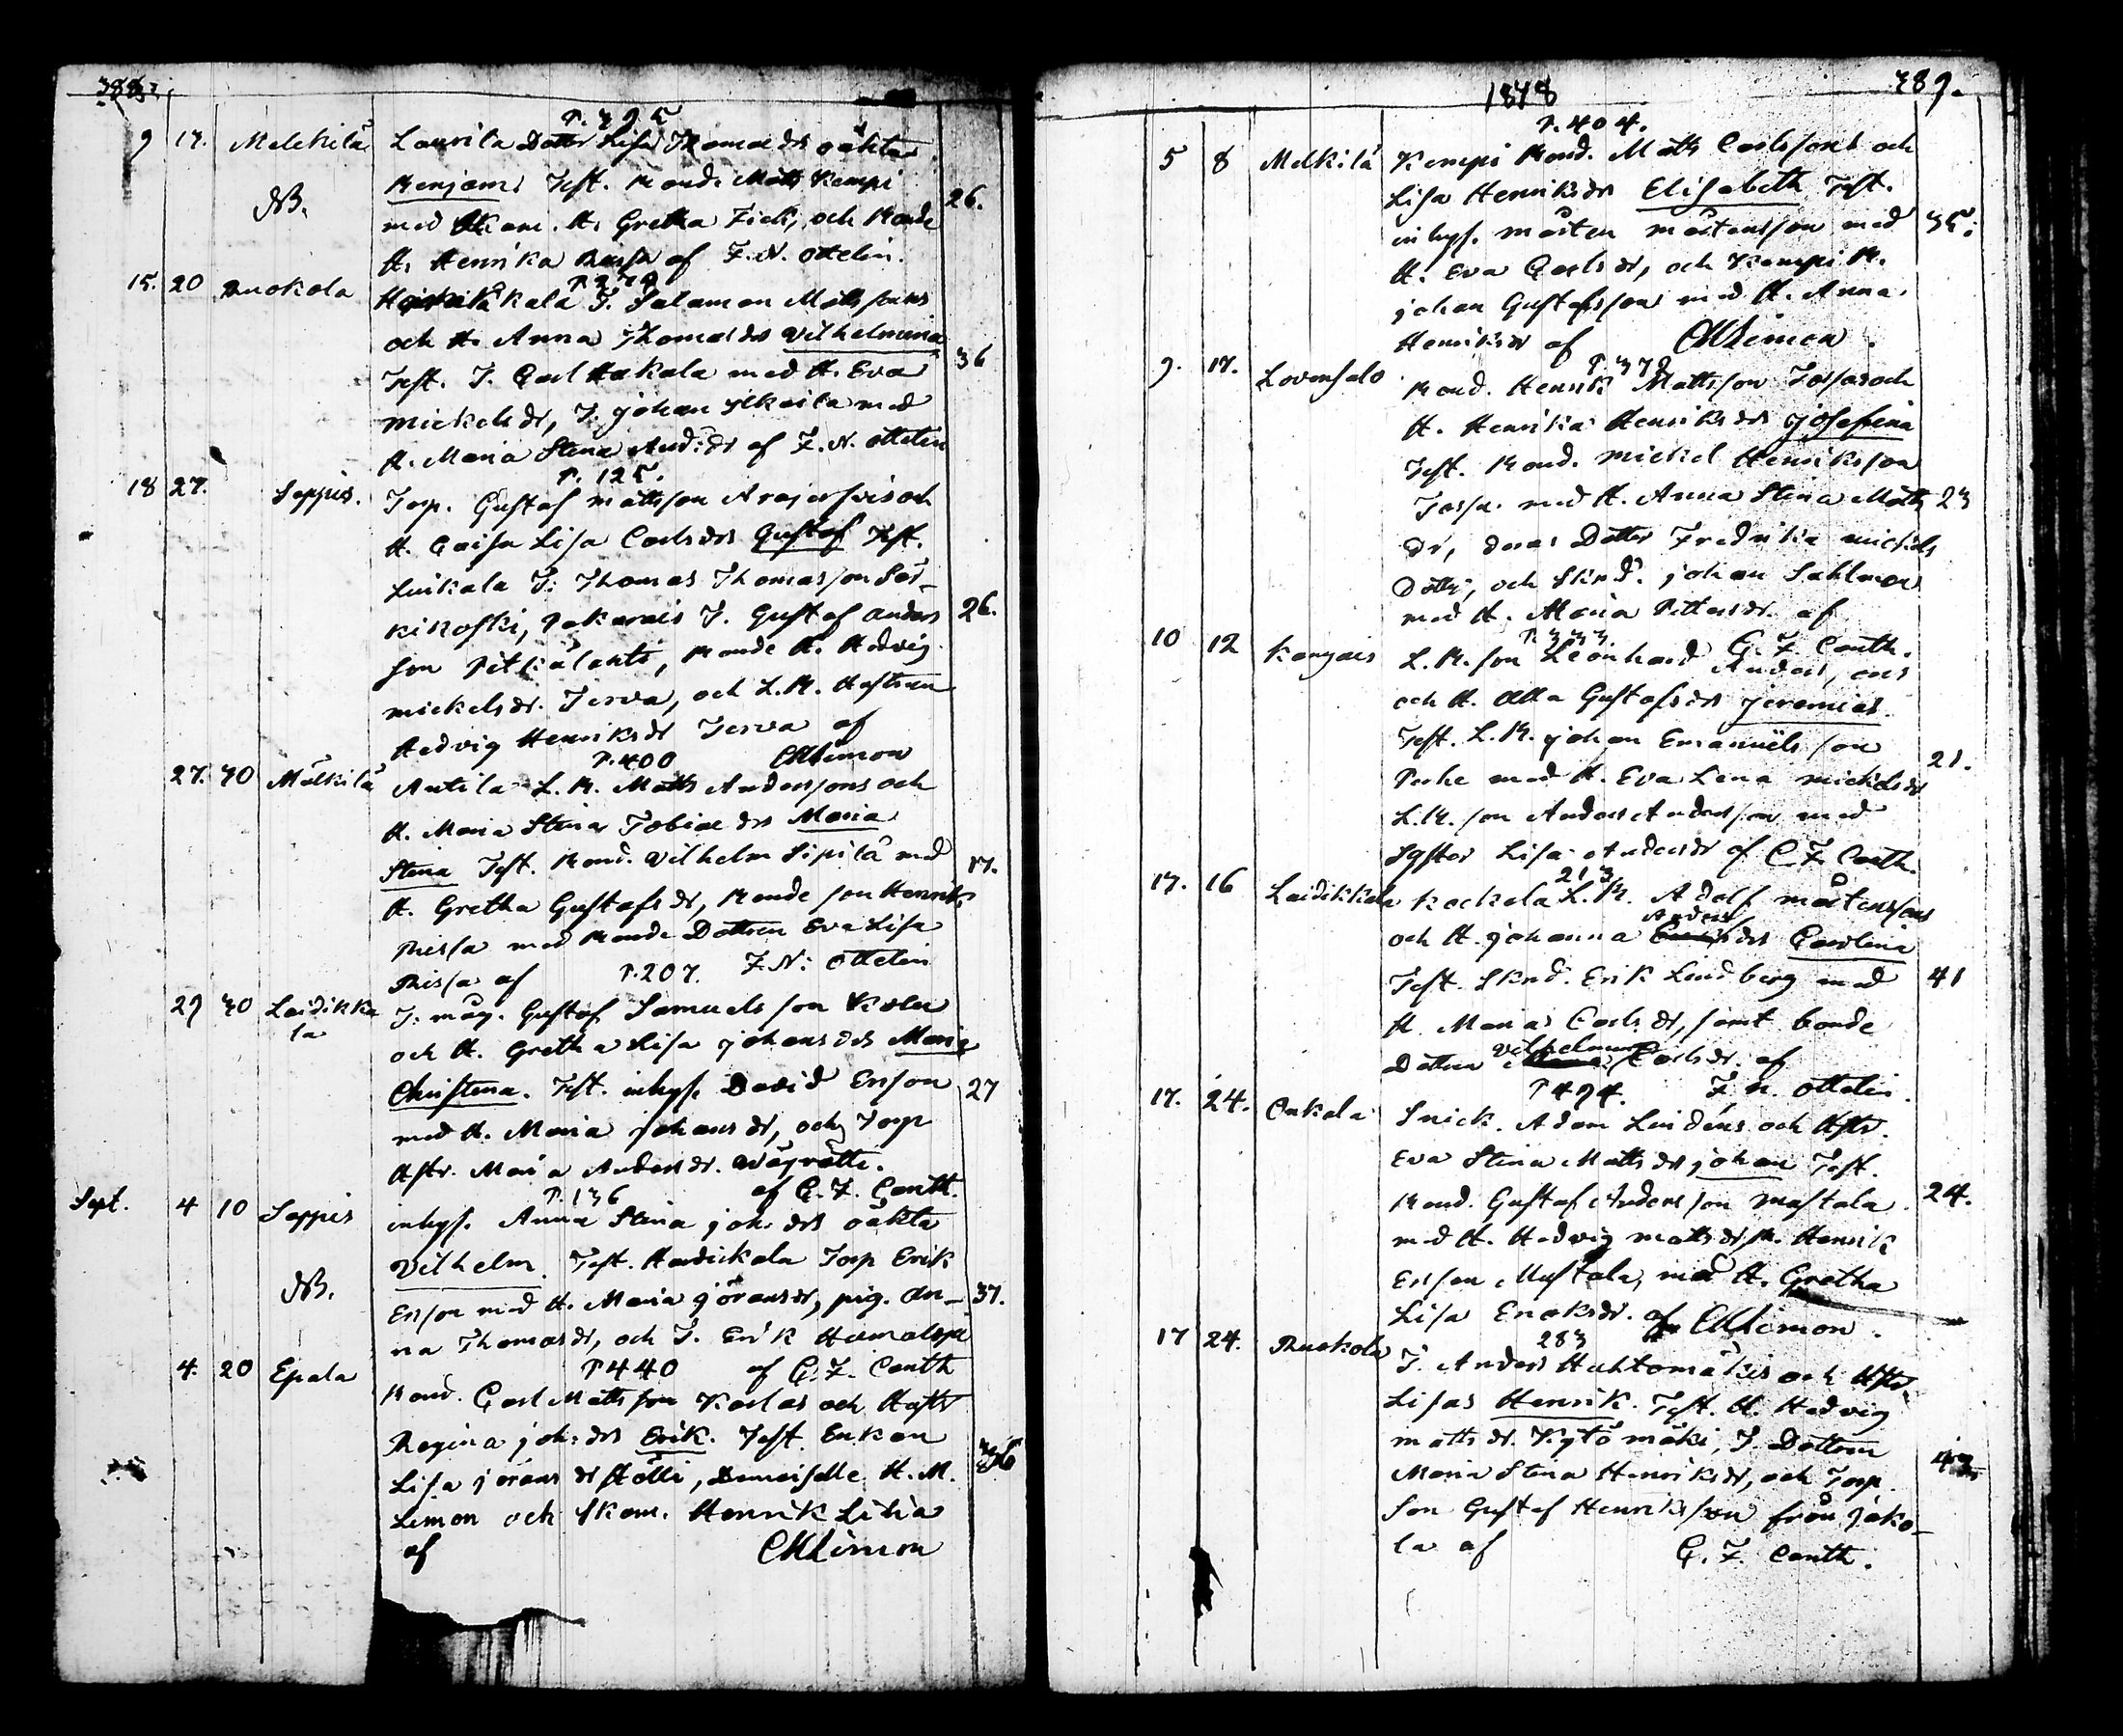 388.
P. 395
9 17. Melckilä Laurila Dotter Lisa Thomæ drs oäkta
Benjam: Test. Bonde Matts Kempi
NB. med Skom. H. Gretha Fick, och Bonde 26.
H. Henrika Rissa af F. N. Ottelin.
P. 279
15. 20 Ruokola kala T. Salamon Mattssons
och H. Anna Thomæ drs Vilhelmina
Test. T. Carl Hakala med H. Eva 36
Mickels dr, T. Johan Ylkaila med
H. Maria Stena And: dr af F. N. Ottelin
P. 125.
18 27. Seppis. Torp. Gustaf Mattsson Arajerfvis och
H. Caisa Lisa Carls drs Gustaf Test.
Luikala T. Thomas Thomasson Sär-
kikoski, Pakarais T. Gustaf Anders 26.
son Pitkälahti, Bonde H. Hedvig
Mickels dr. Jerva, och L. B. Hustrun
Hedvig Henriks dr Jerva af
P. 400 CHLimon
27. 30 Mälkilä Antila L. B. Matts Anderssons och
H. Maria Stina Tobiæ drs Maria
Stena Test. Bond. Vilhelm Sipilä med 17.
H. Gretha Gustafs dr, Bonde son Henrik
Rissa med Bonde Dottren Eva Lisa
Rissa af P. 207. F. N: Ottelin
29 30 Laidikka T. måg. Gustaf Samuelsson Kolu
la och H. Gretha Lisa Johans drs Maria
Christena. Test. inhys. David Ersson 27
med H. Maria Johans dr, och Torp
Hstr. Maria Anders dr. Wägrätti.
P. 136 af C. F. Canth.
Sept. 4 10 Seppis inhys. Anna Stina Joh: drs oäkta
Vilhelm. Test. Haudickala Torp Erik
NB. Ersson med H. Maria Jörans dr, pig. An- 37.
na Thomas dr, och T. Erik
P 440 af C. F. Canth
4. 20 Epala Bond. Carl Mattsson Karlas och Hustr
Regina Joh: drs Erik. Test. Enkan
Lisa Jörans dr Hölli, Demoiselle H. M. 36
Limon och Skom. Henrik Lilia
af CHLimon
1848 389.
P. 404.
5 8 Melkilä Kempi Bond. Matts Carlssons och
Lisa Henriks drs Elisabeth Test.
inhys. Mårten Mårtensson med 35.
H. Eva Carls dr, och Kempi B.
Johan Gustafsson med H. Anna
Henriks dr af CHLimon.
P. 378
9. 17. Lovensalo Bond. Henrik Mattsson Jossas och
H. Henrika Henriks drs Josefina
Test. Bond. Mickel Henriksson
Jossa. med H. Anna Stena Matts 23
dr, deras Dotter Fredrika Mickels
Dotter, och Skrd. Johan Sahlman
med H. Maria Petters dr. af
P. 333. C. F. Canth.
10 12 Kangais L. B. son Leonhard Anderssons
och H. Ulla Gustafs drs Jeremias.
Test. L. B. Johan Emanuelsson
Perhe med H. Eva Lena Mickels dr 21.
L. B. son Anders Andersson med
Syster Lisa Anders dr af C. F. Canth.
213
17. 16 Laidikkala Kockala L. B. Adolf Mårtenssons
Anders
och H. Johanna drs Carolina
Test. Skrd. Erik Lindberg med 41
H. Maria Carls dr, samt bonde
Vilhelmina
Dottren Carls dr. af
P 494. F. N. Ottelin.
17. 24. Onkala Snick. Adam Lindéns och Hstr.
Eva Stina Matts drs Johan Test.
Bond. Gustaf Andersson Mustala. 24.
med H. Hedvig Matts dr, B. Henrik
Ersson Mustala, med H. Gretha
Lisa Enoks dr. af CHLimon.
283
17 24. Ruokola T. Anders Huhtamäkis och Hstr.
Lisas Henrik. Test. H. Hedvig
Matts dr. Kytömäki, T. Dottren
Maria Stina Henriks dr, och Torp.
son Gustaf Henriksson från Jako-
la af C. F. Canth.